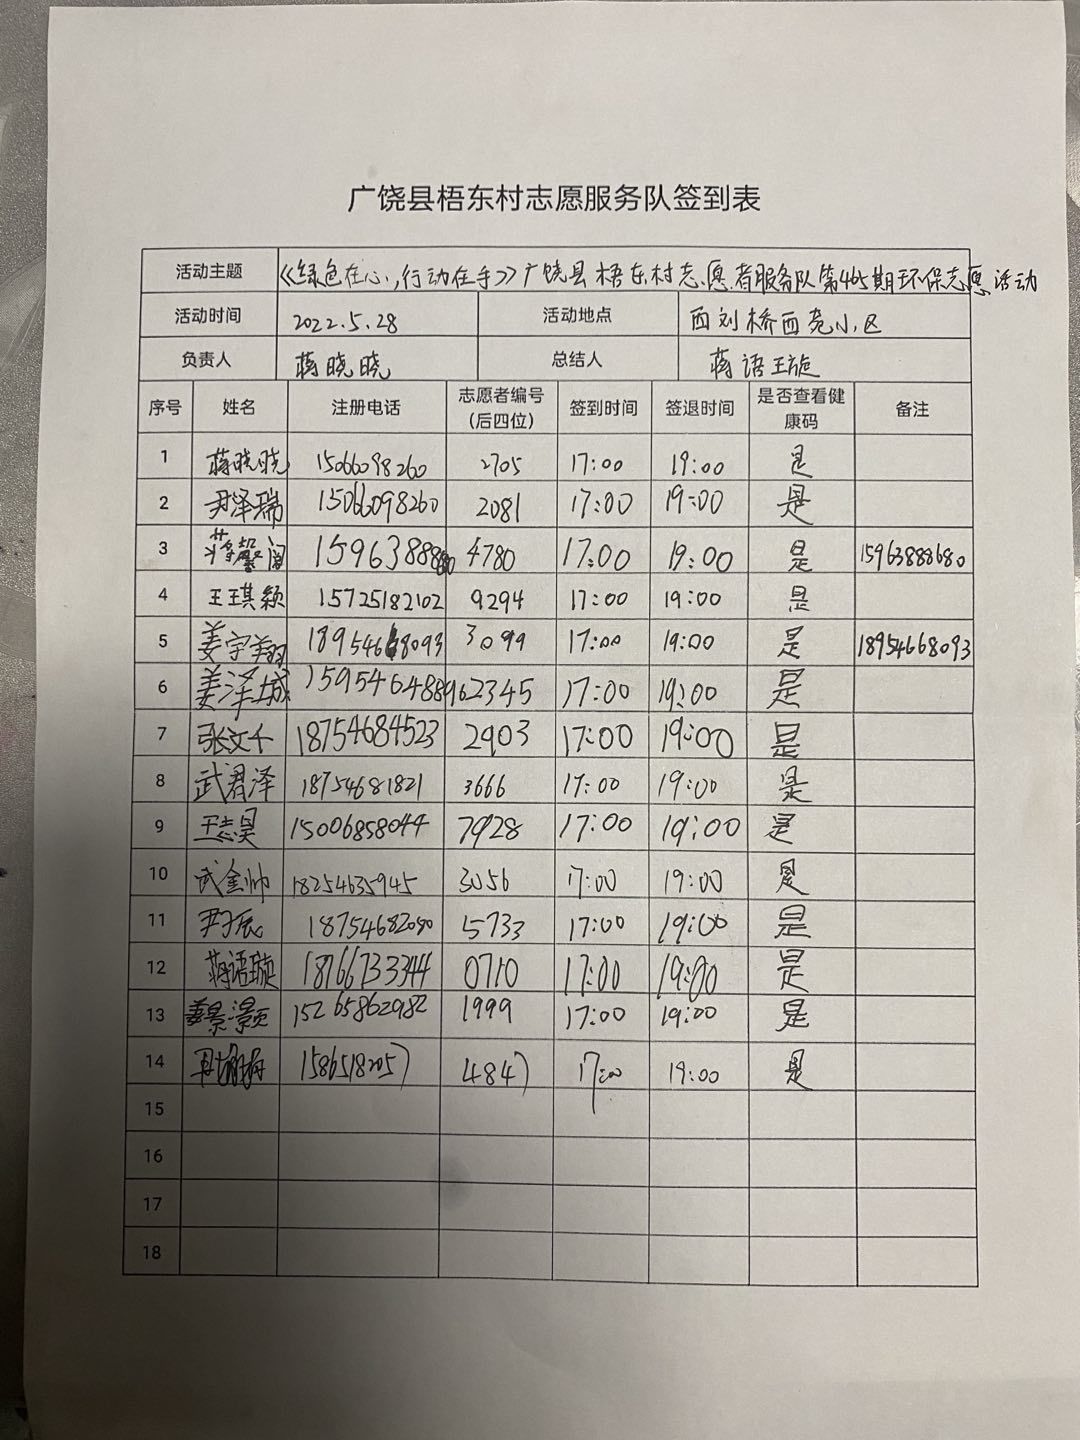 广饶县梧东村志愿服务队签到表
活动主题 《绿色在心,行动在手》广饶县梧东村志愿者服务队第465期环保志愿活动
活动时间 2022.5.28 活动地点 西刘桥西苑小区
负责人 蒋晓晓 总结人 蒋语璇
序号 姓名 注册电话 志愿者编号(后四位) 签到时间 签退时间 是否查看健康码 备注
1 蒋晓晓 15066098260 2705 17:00 19:00 是
2 尹泽瑞 15066098260 2081 17:00 19:00 是
3 蒋馨阅 4780 17:00 19:00 是 15963888680
4 王琪颖 15725182102 9294 17:00 19:00 是
5 姜宇翔 18954668093 3099 17:00 19:00 是 18954668093
6 姜泽城 15954648896 2345 17:00 19:00 是
7 张文千 18754684523 2903 17:00 19:00 是
8 武君泽 18754681821 3666 17:00 19:00 是
9 王志昊 15006858044 7928 17:00 19:00 是
10 武金帅 18254635945 3056 17:00 19:00 是
11 尹子辰 18754682080 5733 17:00 19:00 是
12 蒋语璇 18766733344 0710 17:00 19:00 是
13 姜景灏 15265862982 1999 17:00 19:00 是
14 15865182057 4847 17:00 19:00 是
15
16
17
18